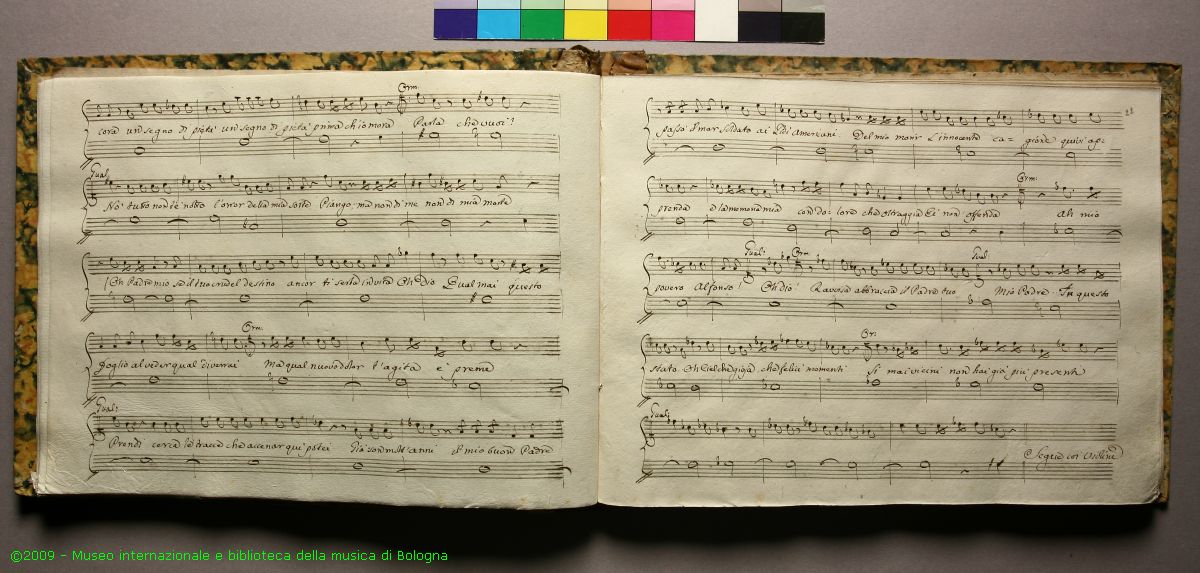 Orm.
cora un segno di pietà un segno di pietà prima ch'io mora Parla che vuoi?
Gual.
No' tutto non t'è noto l'orror della mia sorte Piango, ma non di me non di mia morte
Oh Padre mio se il tuo crudel destino ancor ti serba in vita Oh Dio Qual mai questo
Orm:
foglio al veder qual diverrai Ma qual nuovo dolor t'agita e preme
Gual:
Prendi cerca le trace che accenar qui potei Già son molt'anni Il mio buon Padre
21
passò Inmar soldato ai lidi Americani Del mio morir l'innocente ca-gione quivi ap:
Orm:
prenda e la memoria mia con do-lore che oltraggia Ei non offenda Ah mio
Gual: Orm Gual:
povero Alfonso! Oh dio! Ravvisa abbraccia il Padre tuo Mio Padre In questo
Or:
stato Oh Ciel che gioja che felici momenti Si mai vicini non hai già più presenti
Gual:
Segue coi Violini
©2009 - Museo internazionale e biblioteca della musica di Bologna